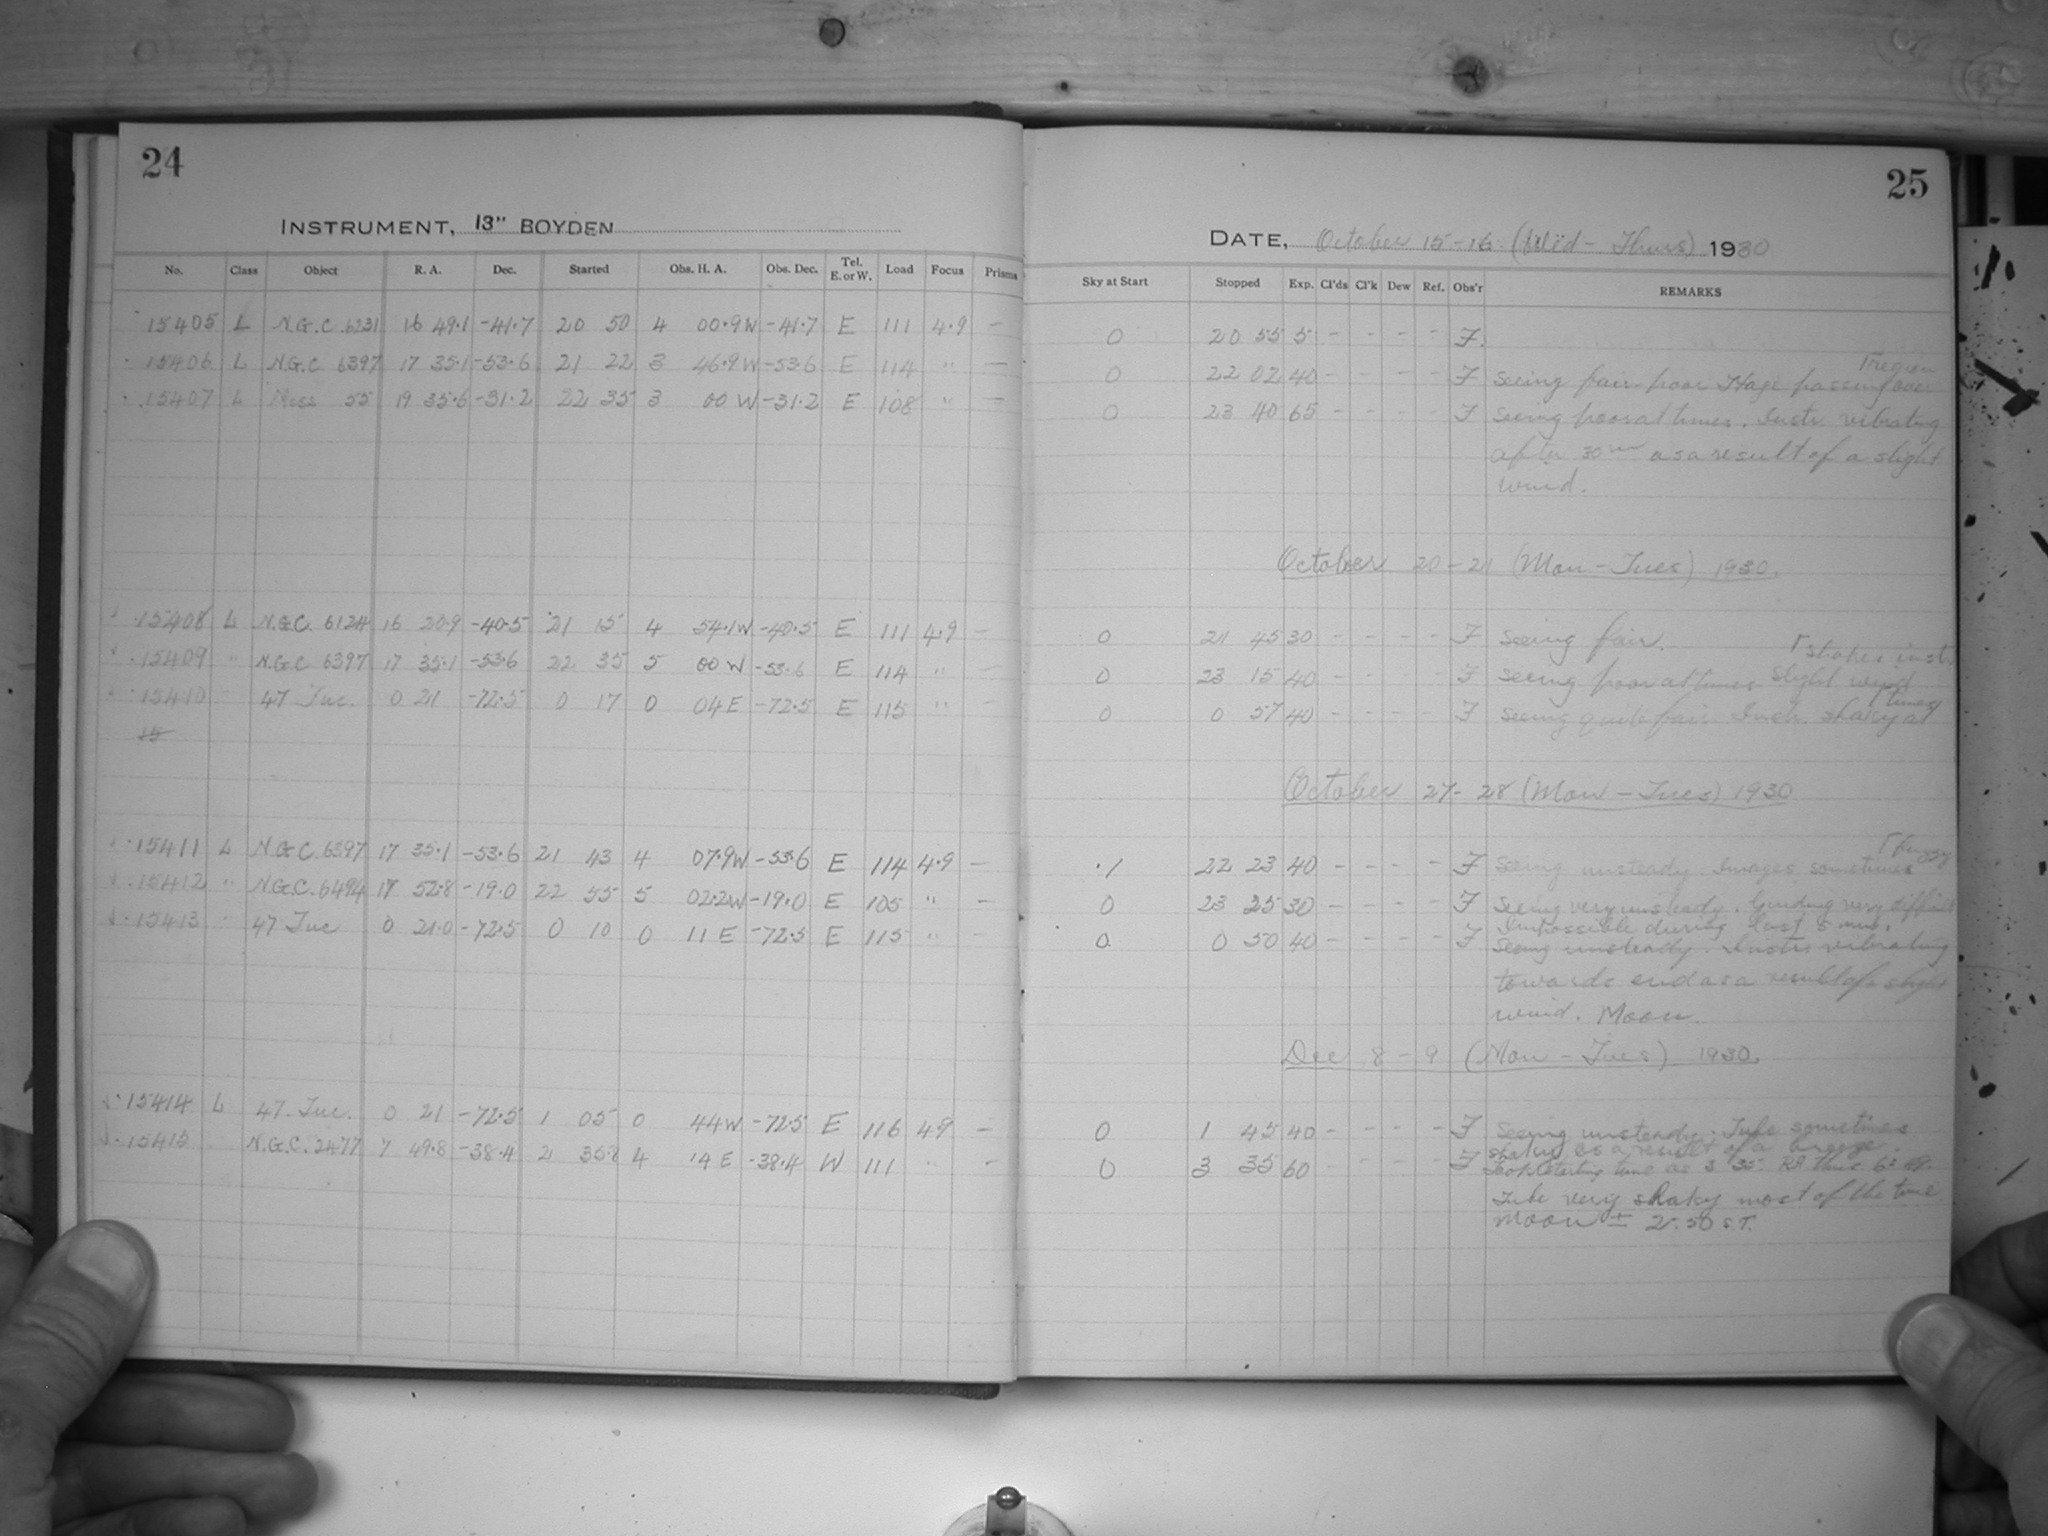 24
INSTRUMENT, 13" BOYDEN
No. Class Object R. A. Dec. Started Obs. H. A. Obs. Dec. Tel. E. or W. Load Focus Prisms
15405 L N.G.C. 6231 16 49.1 -41.7 20 50 4 00.9W -41.7 E 111 4.9 -
15406 L N.G.C 6397 17 35.1 -53.6 21 22 3 46.9W -53.6 E 114 " -
15407 L Mess 55 19 35.6 -31.2 22 35 3 00 W -31.2 E 108 " -
15408 L N.G.C. 6124 16 20.9 -40.5 21 15 4 54.1W -40.5 E 111 4.9 -
15409 " N.G.C 6397 17 35.1 -53.6 22 35 5 00 W -53.6 E 114 " -
15410 " 47 Tuc. 0 21 -72.5 0 17 0 04 E -72.5 E 115 " -
15
15411 L N.G.C. 6397 17 35.1 -53.6 21 43 4 07.9W -53.6 E 114 4.9 -
15412 " N.G.C. 6494 17 52.8 -19.0 22 55 5 02.2W -19.0 E 105 " -
15413 " 47 Tuc 0 21.0 -72.5 0 10 0 11 E -72.5 E 115 " -
15414 L 47 Tuc. 0 21 -72.5 1 05 0 44W -72.5 E 116 4.9 -
15415 N.G.C. 2477 7 49.8 -38.4 2 35.8 4 14 E -38.4 W 111 " -
25
DATE, October 15-16 (Wed - Thurs) 1930
Sky at Start Stopped Exp. Cl'ds Cl'k Dew Ref. Obs'r REMARKS
0 20 55 5 - - - - F.
region
0 22 02 40 - - - - F Seeing fair-poor Haze passing over
0 23 40 65 - - - - F Seeing poor at times. Instr. vibrating
after 30m as a result of a slight
wind.
October 20-21 (Mon-Tues) 1930.
0 21 45 30 - - - - F Seeing fair.
shakes instr
0 23 15 40 - - - - F Seeing poor at times Slight wind
times
0 0 57 40 - - - - F Seeing quite fair Instr. shaky at
October 27-28 (Mon-Tues) 1930
fuzzy
.1 22 23 40 - - - - F Seeing unsteady. Images sometimes
0 23 25 30 - - - - F Seeing very unsteady. Guiding very difficult
Impossible during last 5 min.
0 0 50 40 - - - - F Seeing unsteady. Instr. vibrating
towards end as a result of a slight
wind. Moon.
Dec 8-9 (Mon-Tues) 1930.
0 1 45 40 - - - - F Seeing unsteady. Tube sometimes
shaky as a result of a breeze.
0 3 35 60 - - - - F starting time as 3 35. RA
Tube very shaky most of the time
Moon ± 2.50 S.T.